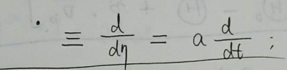 ˙ ≡ d/dη = a d/dt ;